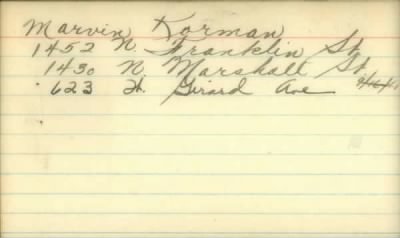 Marvin Korman
1452 N. Franklin St.
1430 N. Marshall St.
623 W. Girard Ave